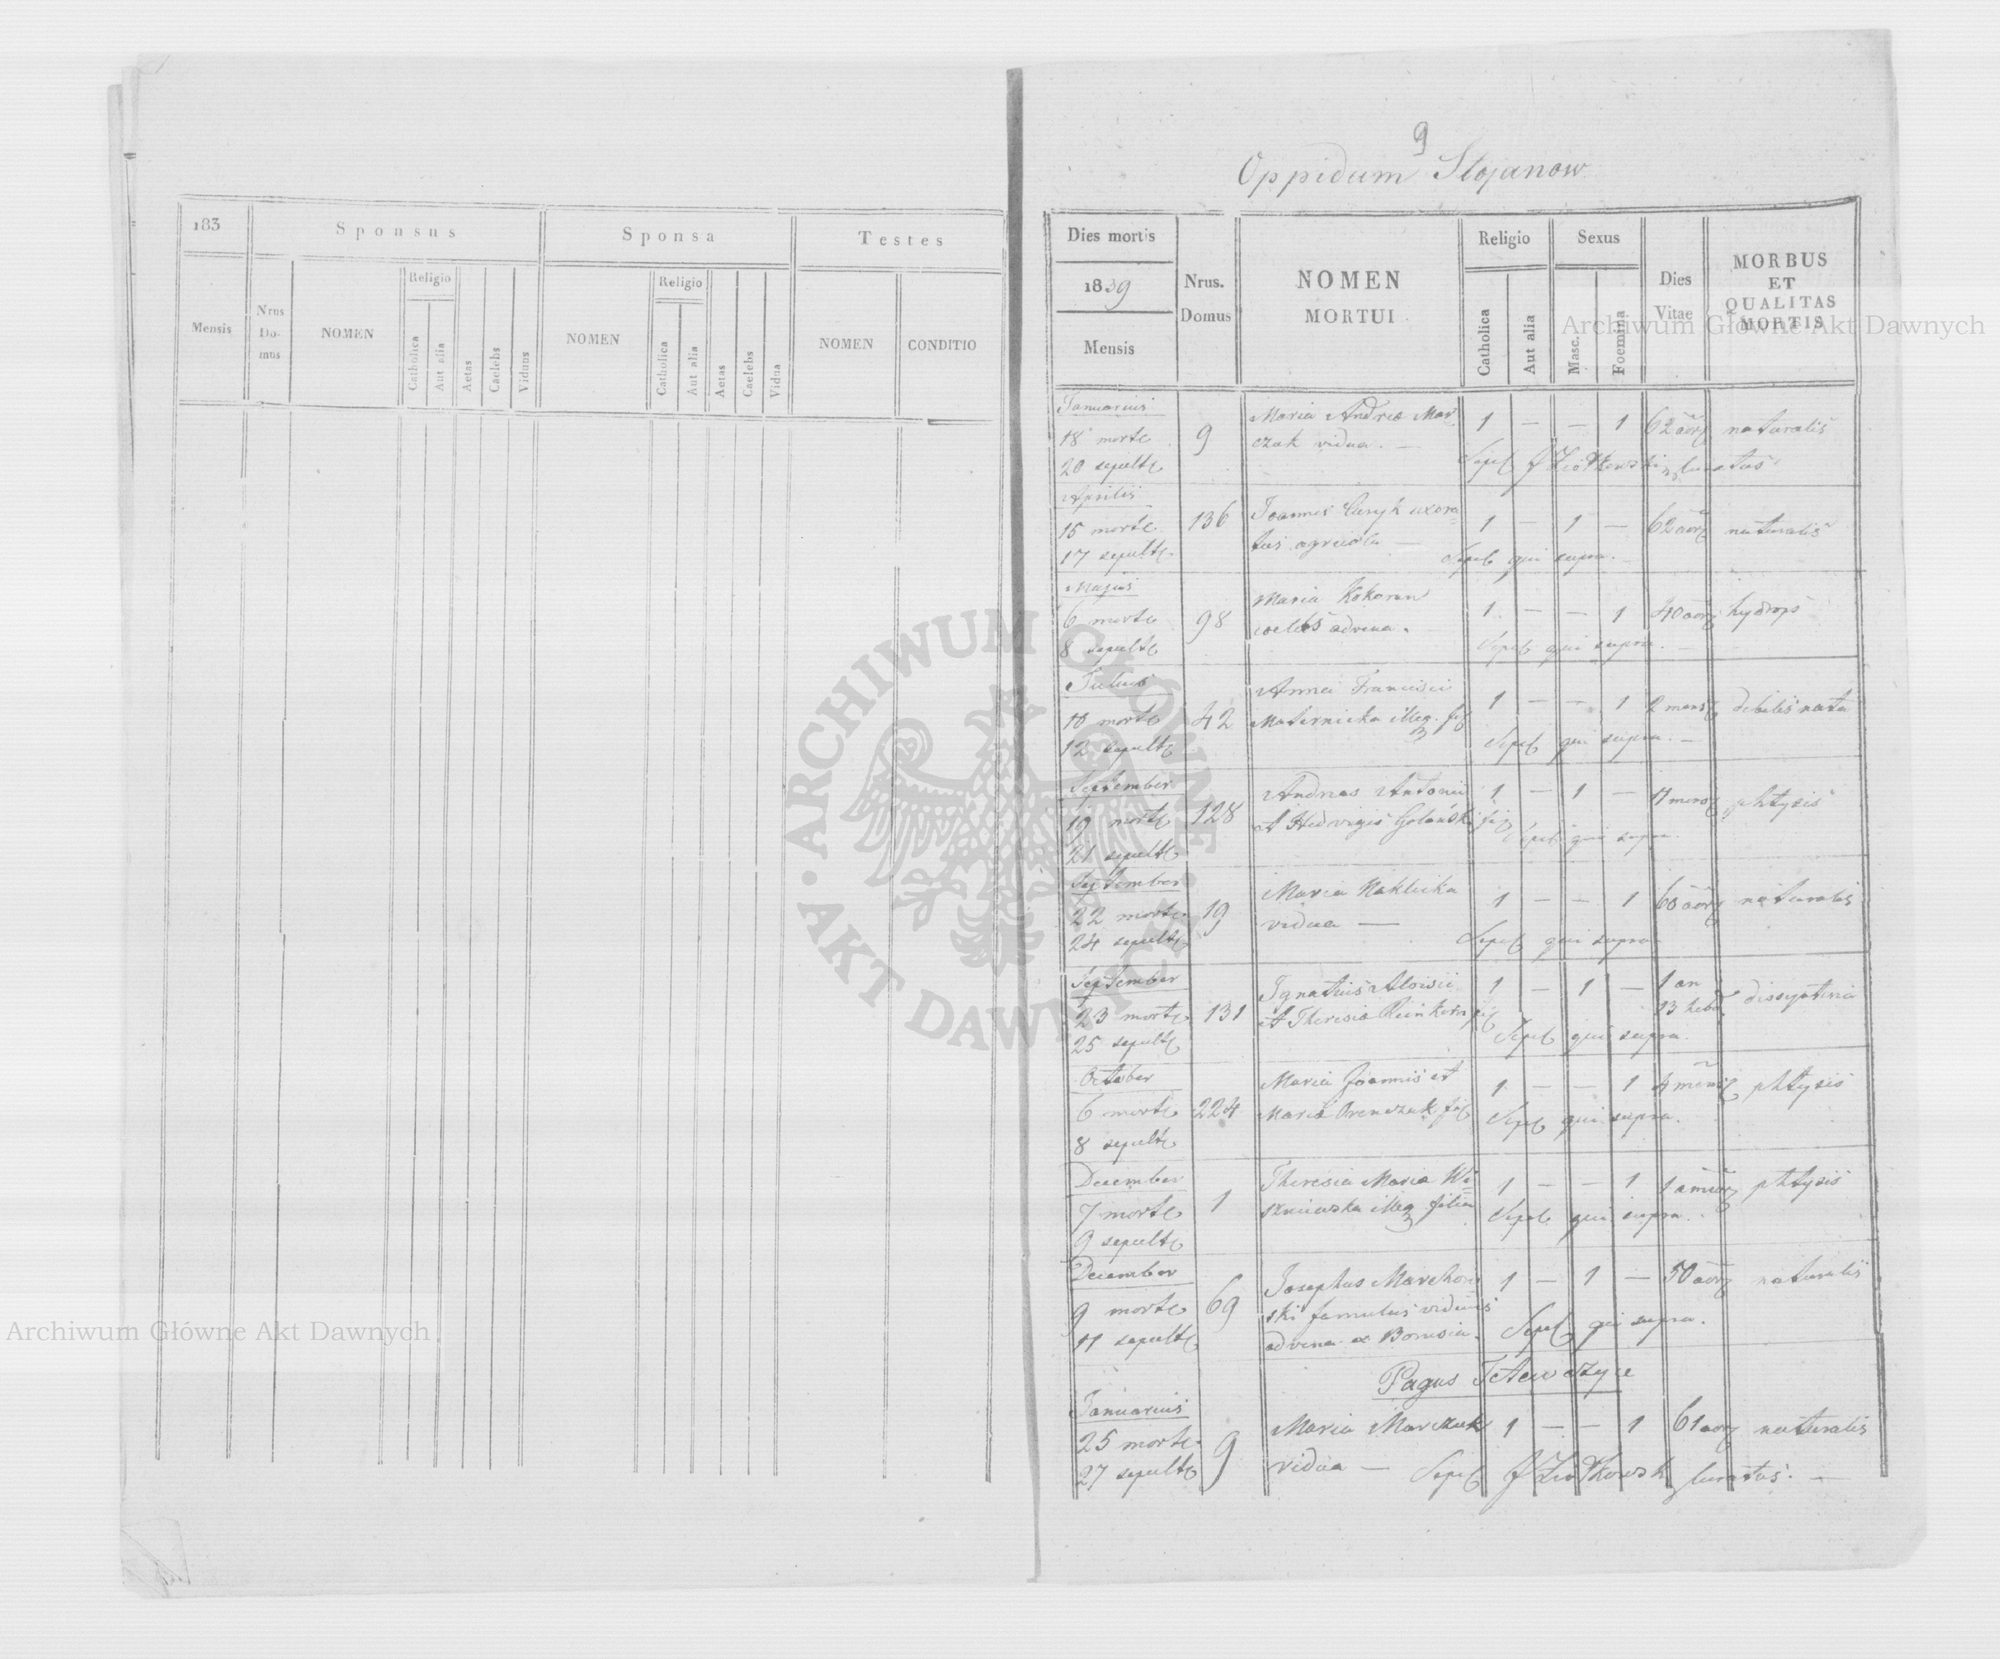 183
Sponsus
Sponsa
Testes
Mensis
Nrus Do- mus
NOMEN
Religio
Catholica
Aut alia
Aetas
Caelebs
Viduus
NOMEN
Religio
Catholica
Aut alia
Aetas
Caelebs
Vidua
NOMEN
CONDITIO
9
Oppidum Stojanow
Dies mortis
1839
Mensis
Nrus. Domus
NOMEN
MORTUI
Religio
Catholica
Aut alia
Sexus
Masc.
Foemina
Dies
Vitae
MORBUS
ET
QUALITAS
MORTIS
Januarius
18 morte 9 Maria Andrea Mar- 1 — — 1 62 naturalis
20 sepulte czak vidua. —
Sepel J Ziołkowski Curatus
Aprilis
15 morte 136 Joannes Caryk uxora- 1 — 1 — 62 naturalis
17 sepulte tus agricola — Sepel qui supra.
Majus
6 morte 98 Maria Kokoran 1 — — 1 40 hydrops
8 sepulte coelebs advena. Sepel qui supra. —
Julius
10 morte 42 Anna Francisci 1 — — 1 2 mens debilis nata
12 sepulte Maternicka illeg. Sepel qui supra. —
September
19 morte 128 Andreas Antonii 1 — 1 — 11 mens phtysis
21 sepulte et Hedvigis Golański Sepel qui supra.
September
22 morte 19 Maria Naklicka 1 — — 1 60 naturalis
24 sepulte vidua — Sepel qui supra
September
23 morte 131 Ignatius Aloisii 1 — 1 — 1 an 13 hebd.
25 sepulte et Theresia Sepel qui supra.
October
6 morte 224 Maria Joannis et 1 — — 1 4 mens phtysis
8 sepulte Maria Sepel qui supra.
December
7 morte 1 Theresia Maria Wi- 1 — — 1 1 phtysis
9 sepulte szniewska illeg filia Sepel qui supra.
December
9 morte 69 Josephus 1 — 1 — 50 naturalis
11 sepulte ski famulus viduus
advena ex Borusia. Sepel qui supra.
Pagus Tetewczyce
Januarius
25 morte 9 Maria Marczuk 1 — — 1 61 naturalis
27 sepulte vidua — Sepel J Ziołkowski Curatus. —
Archiwum Główne Akt Dawnych
Archiwum Główne Akt Dawnych
ARCHIWUM GŁÓWNE · AKT DAWNYCH ·